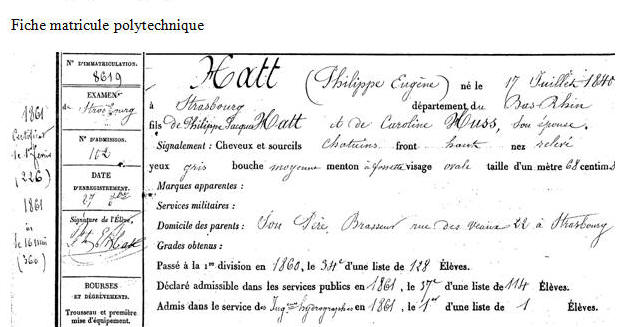 Fiche matricule polytechnique
N° D'IMMATRICULATION.
8619
EXAMEN
de Strasbourg
N° D'ADMISSION.
102
DATE
D'ENREGISTREMENT.
27
Signature de l'Élève,
BOURSES
ET DÉGRÈVEMENTS.
Trousseau et première
mise d'équipement.
1861
(226)
1861
le 16 mai
(360)
Hatt (Philippe Eugène) né le 17 Juillet 1840
à Strasbourg département du Bas-Rhin
fils de Philippe Jacques Hatt et de Caroline Huss, son épouse.
Signalement : Cheveux et sourcils chatains front haut nez relevé
yeux gris bouche moyenne menton à fossette visage ovale taille d'un mètre 68 centim.s
Marques apparentes :
Services militaires :
Domicile des parents : Son Père, Brasseur rue des Veaux 22 à Strasbourg
Grades obtenus :
Passé à la 1re division en 1860, le 34e d'une liste de 128 Élèves.
Déclaré admissible dans les services publics en 1861, le 37e d'une liste de 114 Élèves.
Admis dans le service des Ing. hydrographes en 1861, le 1er d'une liste de 1 Élèves.